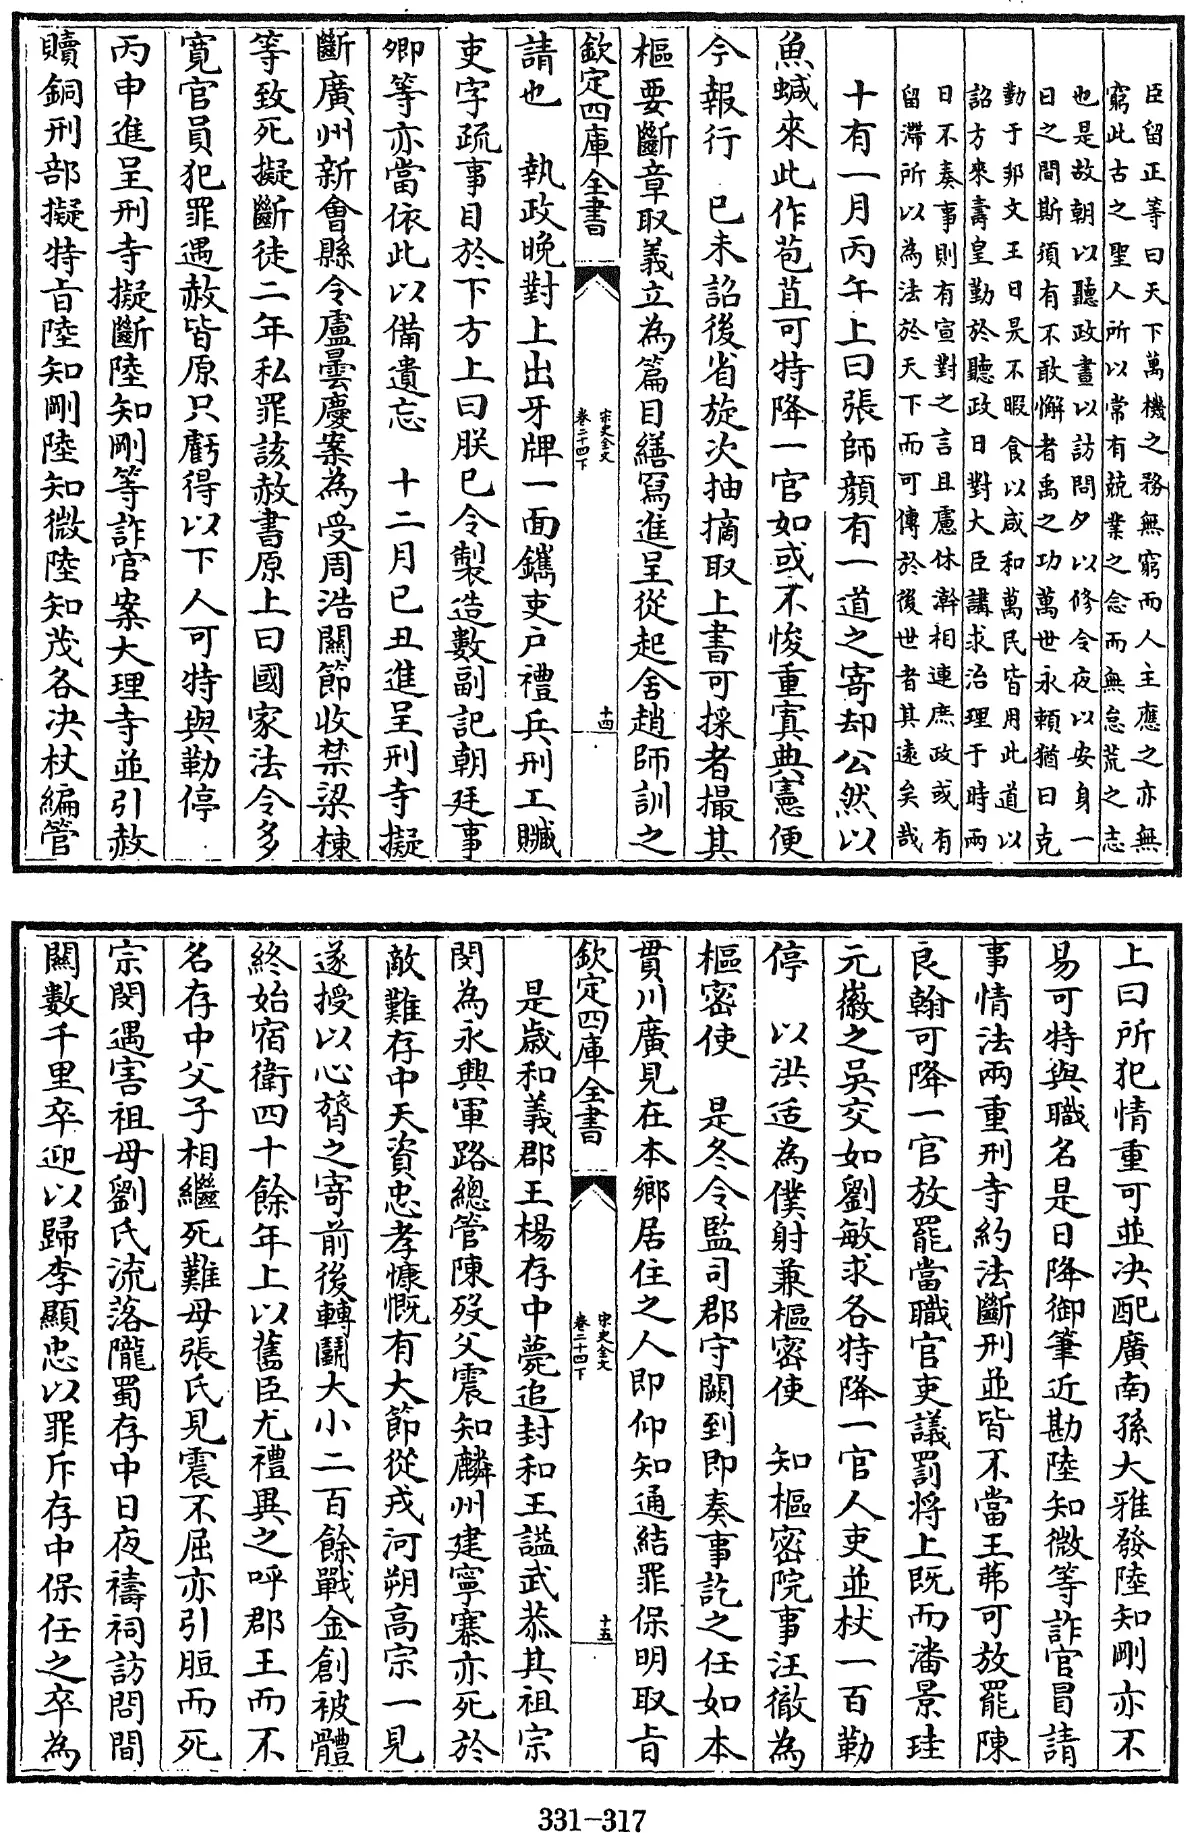 臣留正等曰天下萬機之務無窮而人主應之亦無
窮此古之聖人所以常有兢業之念而無怠荒之志
也是故朝以聽政晝以訪問夕以修令夜以安身一
日之間斯須有不敢懈者禹之功萬世永賴猶曰克
勤于邦文王日昃不暇食以咸和萬民皆用此道以
詔方來壽皇勤於聽政日對大臣講求治理于時兩
日不奏事則有宣對之言且慮休澣相連庶政或有
留滯所以為法於天下而可傳於後世者其遠矣哉
十有一月丙午上曰張師顏有一道之寄却公然以
魚鰔來此作苞苴可特降一官如或不悛重寘典憲便
今報行　已未詔後省旋次抽摘取上書可採者撮其
樞要斷章取義立為篇目繕寫進呈從起舍趙師訓之
請也　執政晚對上出牙牌一面鐫吏戶禮兵刑工贓
吏字疏事目於下方上曰朕已令製造數副記朝廷事
卿等亦當依此以備遺忘　十二月已丑進呈刑寺擬
斷廣州新會縣令盧曇慶案為受周浩關節收禁梁棟
等致死擬斷徒二年私罪該赦書原上曰國家法令多
寛官員犯罪遇赦皆原只虧得以下人可特與勒停
丙申進呈刑寺擬斷陸知剛等詐官案大理寺並引赦
贖銅刑部擬特㫖陸知剛陸知微陸知茂各決杖編管
欽定四庫全書
宋史全文
卷二十四下
十四
上曰所犯情重可並決配廣南孫大雅發陸知剛亦不
易可特與職名是日降御筆近勘陸知微等詐官冒請
事情法兩重刑寺約法斷刑並皆不當王弗可放罷陳
良翰可降一官放罷當職官吏議罰將上既而潘景珪
元徽之吳交如劉敏求各特降一官人吏並杖一百勒
停　以洪适為僕射兼樞密使　知樞密院事汪徹為
樞密使　是冬令監司郡守闕到即奏事訖之任如本
貫川廣見在本鄉居住之人即仰知通結罪保明取㫖
是歳和義郡王楊存中薨追封和王諡武恭其祖宗
閔為永興軍路總管陳歿父震知麟州建寧寨亦死於
敵難存中天資忠孝慷慨有大節從戎河朔高宗一見
遂授以心膂之寄前後轉鬬大小二百餘戰金創被體
終始宿衛四十餘年上以舊臣尤禮異之呼郡王而不
名存中父子相繼死難母張氏見震不屈亦引脰而死
宗閔遇害祖母劉氏流落隴蜀存中日夜禱祠訪問間
關數千里卒迎以歸李顯忠以罪斥存中保任之卒為
欽定四庫全書
宋史全文
卷二十四下
十五
331-317